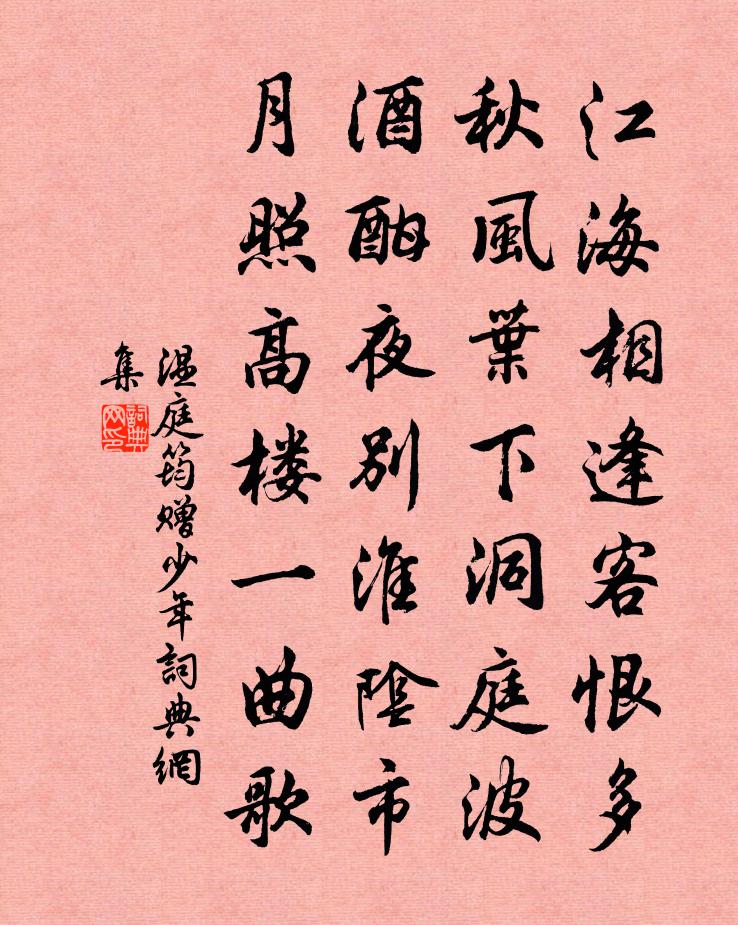 江海相逢客恨多
秋風葉下洞庭波
酒酣夜別淮陰市
月照高楼一曲歌
温庭筠赠少年詞典網
集
詞典
网印